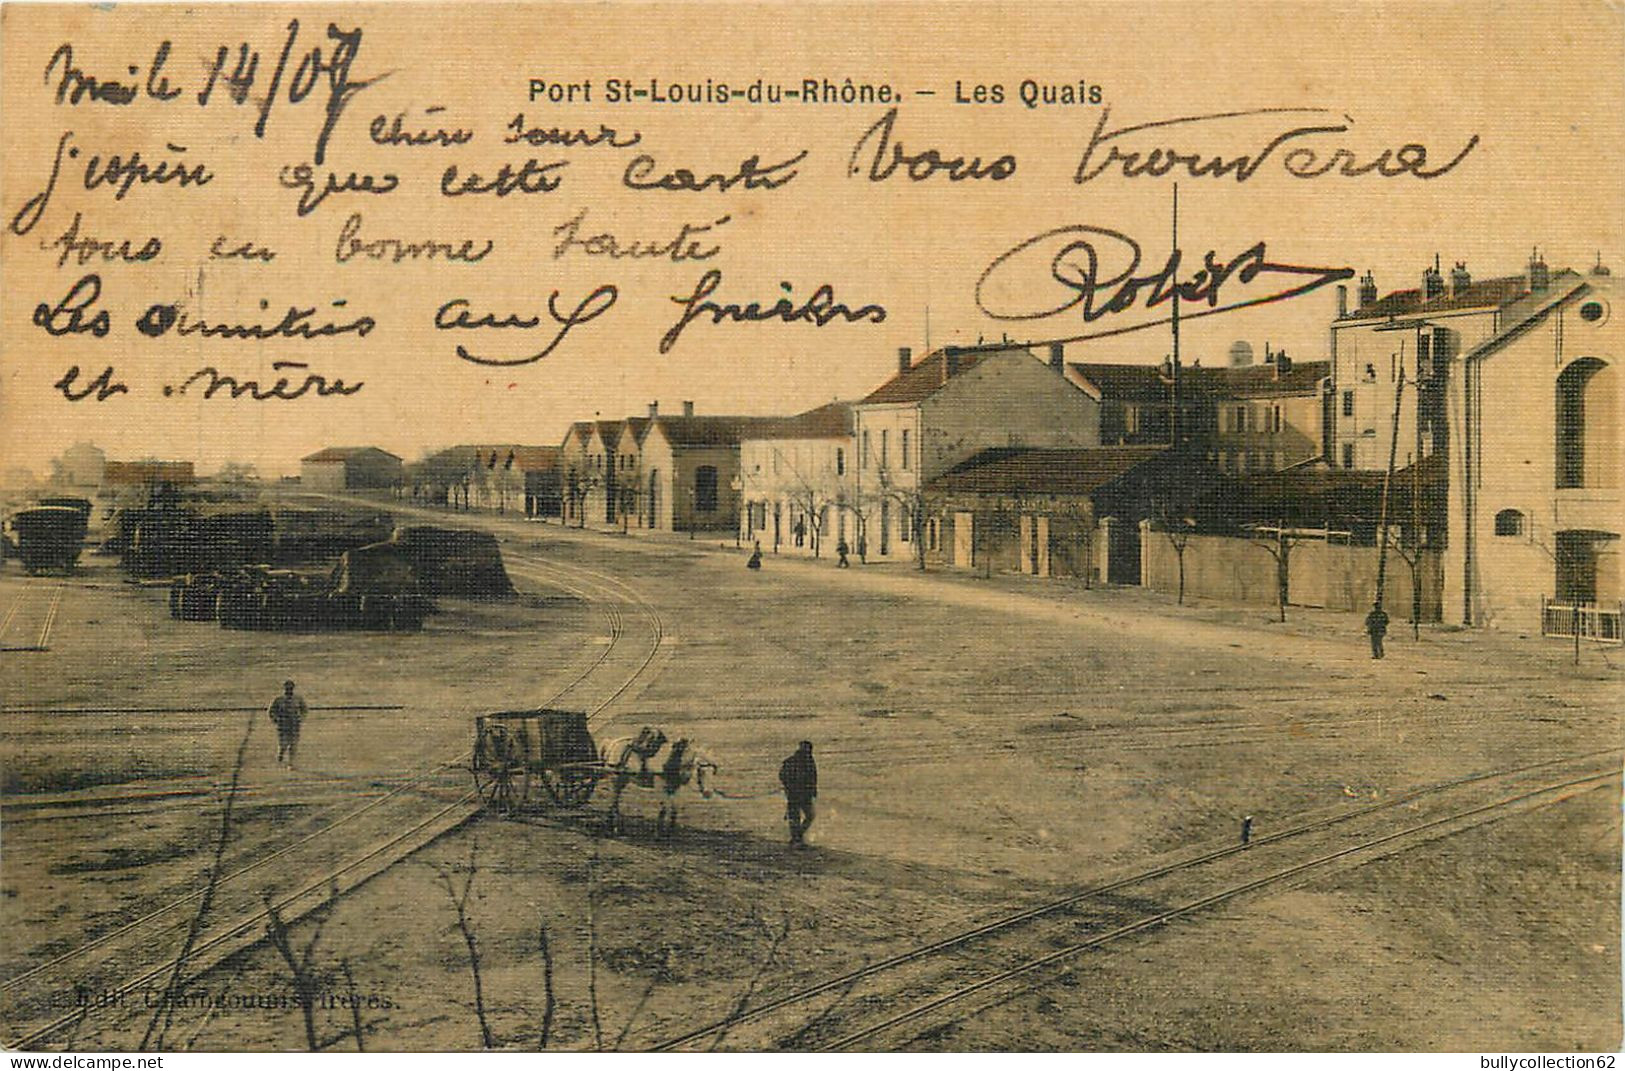 Mai le 14/07
Port St-Louis-du-Rhône. - Les Quais
Chère sœur
J'espère que cette carte vous trouvera
tous en bonne santé
Robert
Les amitiés aux frères
et mère
Edit. frères.
delcampe.net
bullycollection62